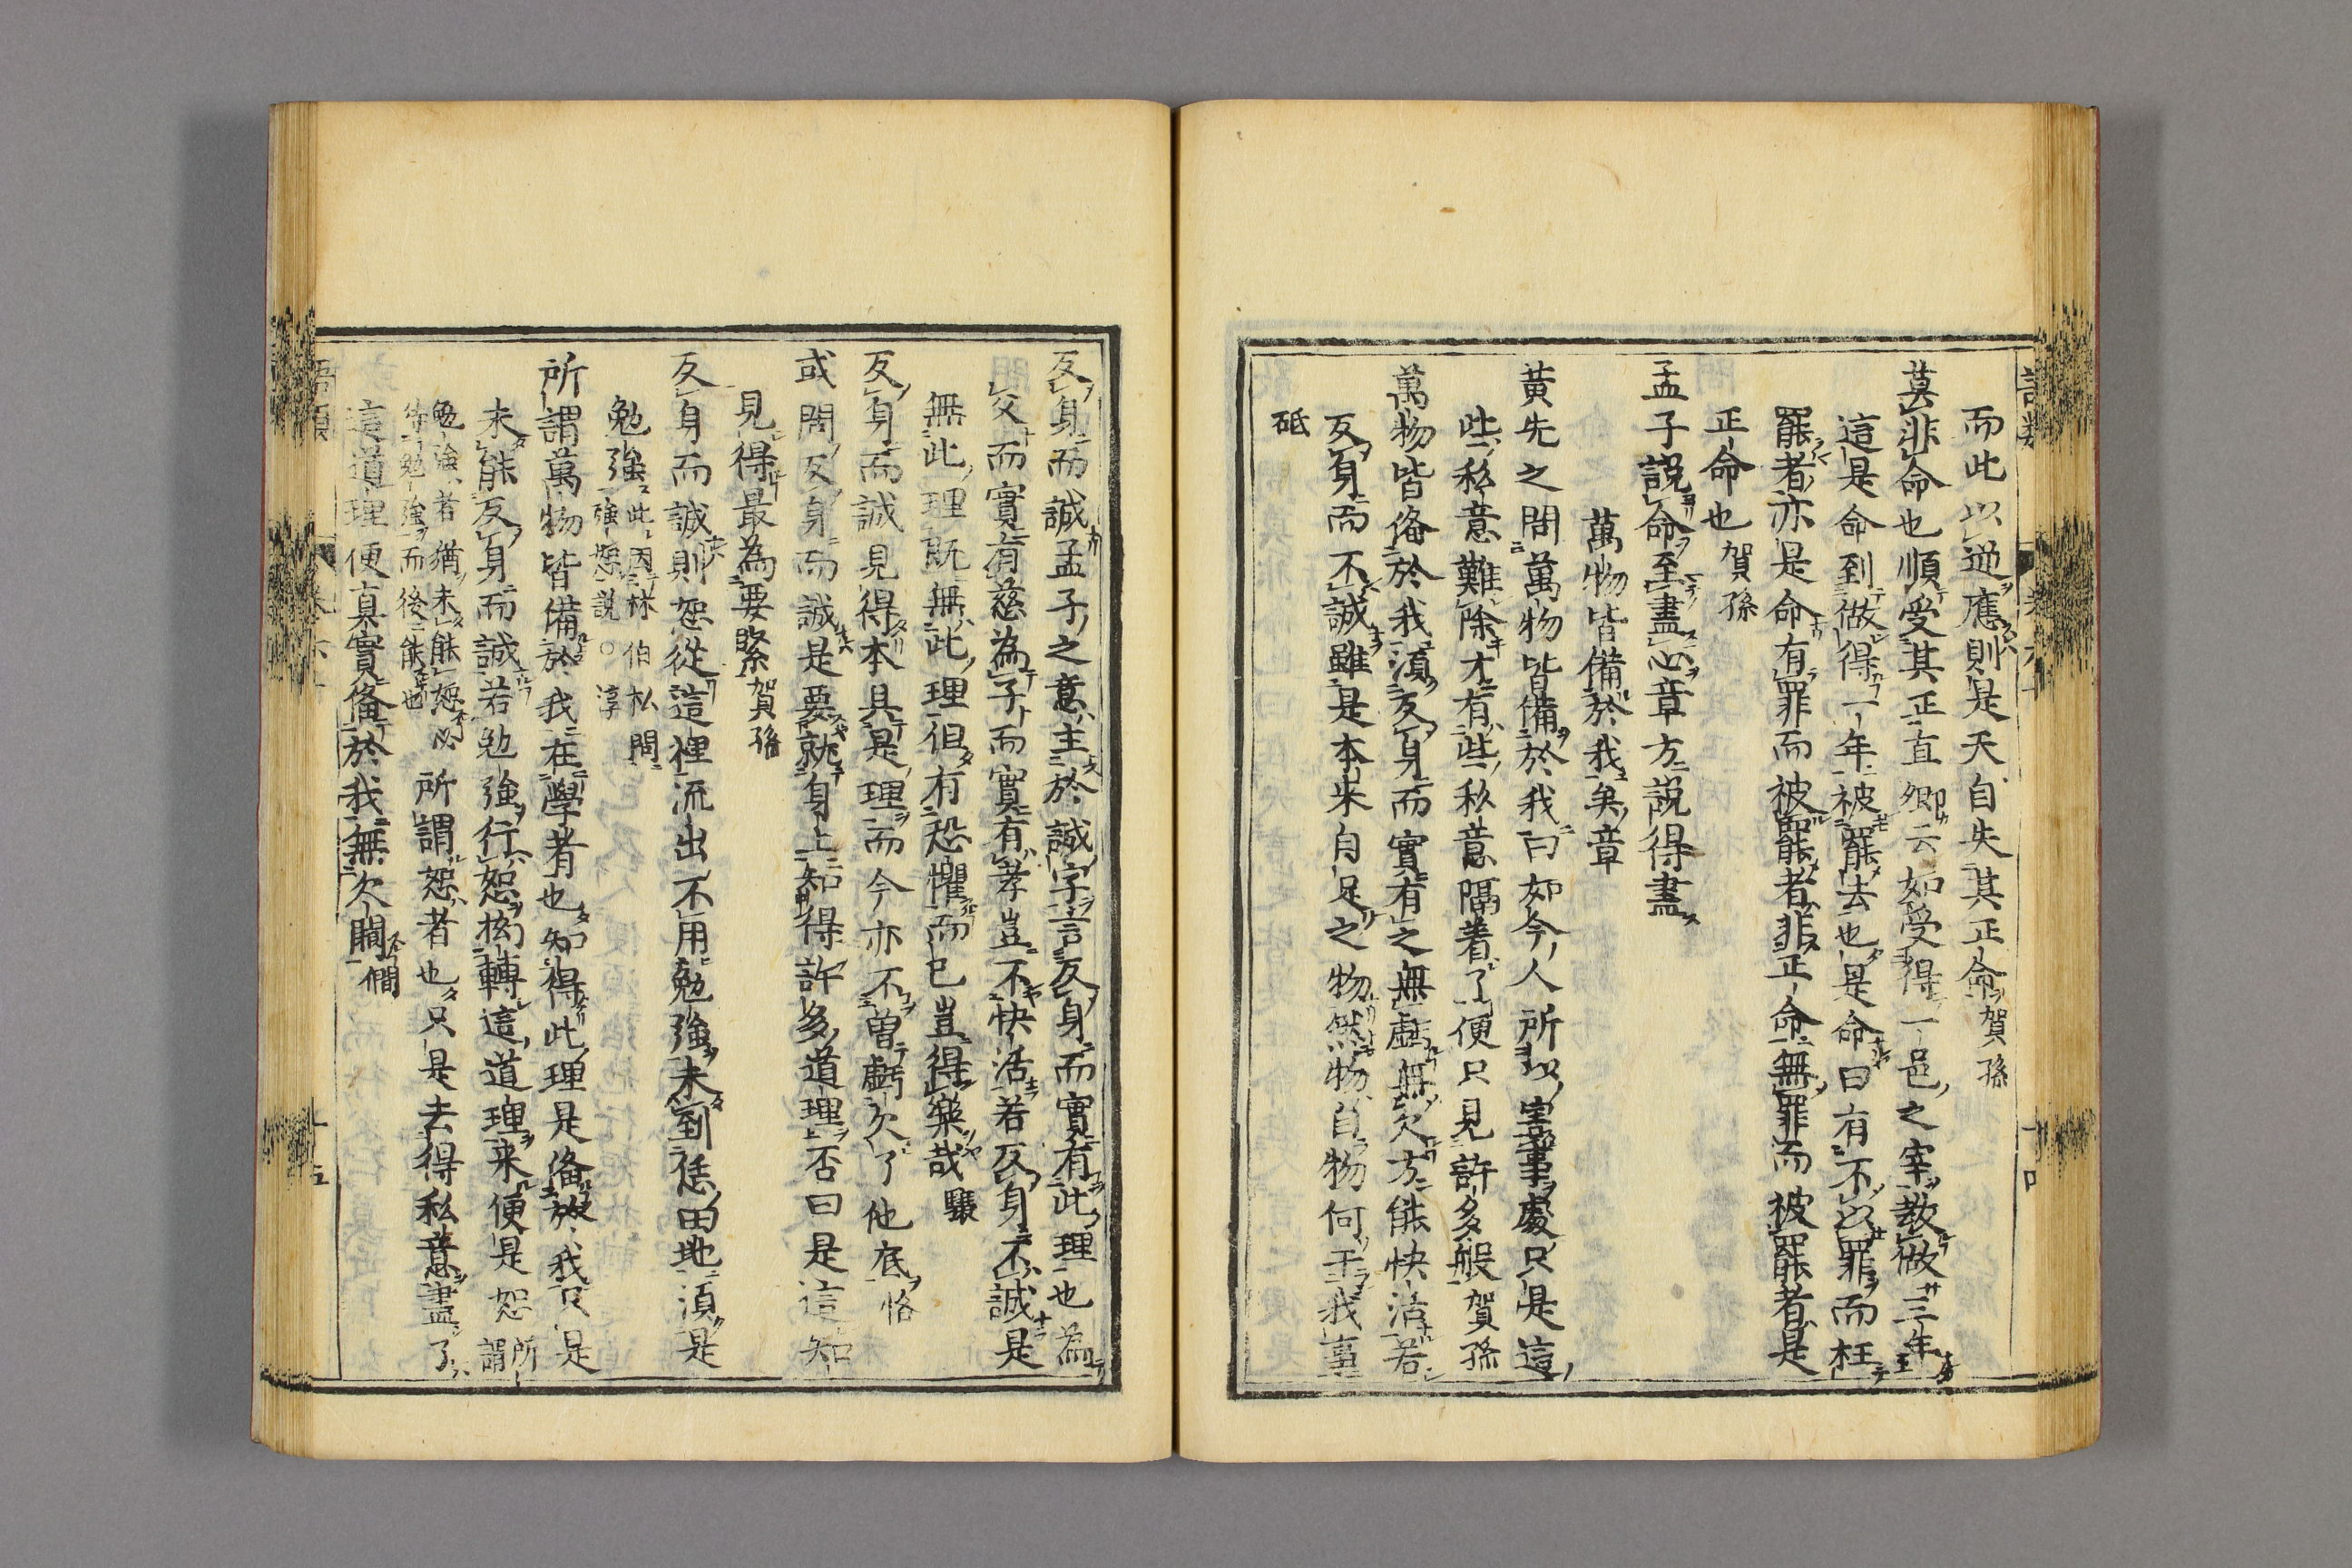 而此以逆應則是天自失其正命賀孫
莫非命也順受其正直卿云如受得一邑之宰教做三年
這是命到做得一年被罷去也是命曰有不以罪而枉
罷者亦是命有罪而被罷者非正命無罪而被罷者是
正命也賀孫
孟子說命至盡心章方說得盡
萬物皆備於我矣章
黃先之問萬物皆備於我曰如今人所以害事處只是這
些私意難除才有些私意隔着了便只見許多般賀孫
萬物皆俻於我須反身而實有之無虧無欠方能快活若
反身而不誠雖是本来自足之物然物自物何干我事
砥
反身而誠孟子之意主於誠字言反身而實有此理也為
父而實有慈為子而實有孝豈不快活若反身不誠是
無此理既無此理但有恐懼而已豈得樂哉驤
反身而誠見得本具是理而今亦不曾虧欠了他底恪
或問反身而誠是要就身上知得許多道理否曰是這知
見得最為要緊賀孫
反身而誠則恕從這裡流出不用勉強未到恁田地須是
勉強此因林伯松問強恕說○淳
所謂萬物皆備於我在學者也知得此理是俻於我只是
未能反身而誠若勉強行恕拗轉這道理来便是恕所謂
勉強者猶未能恕必待勉強而後能也所謂恕者也只是去得私意盡了
這道理便真實俻於我無欠闕僩